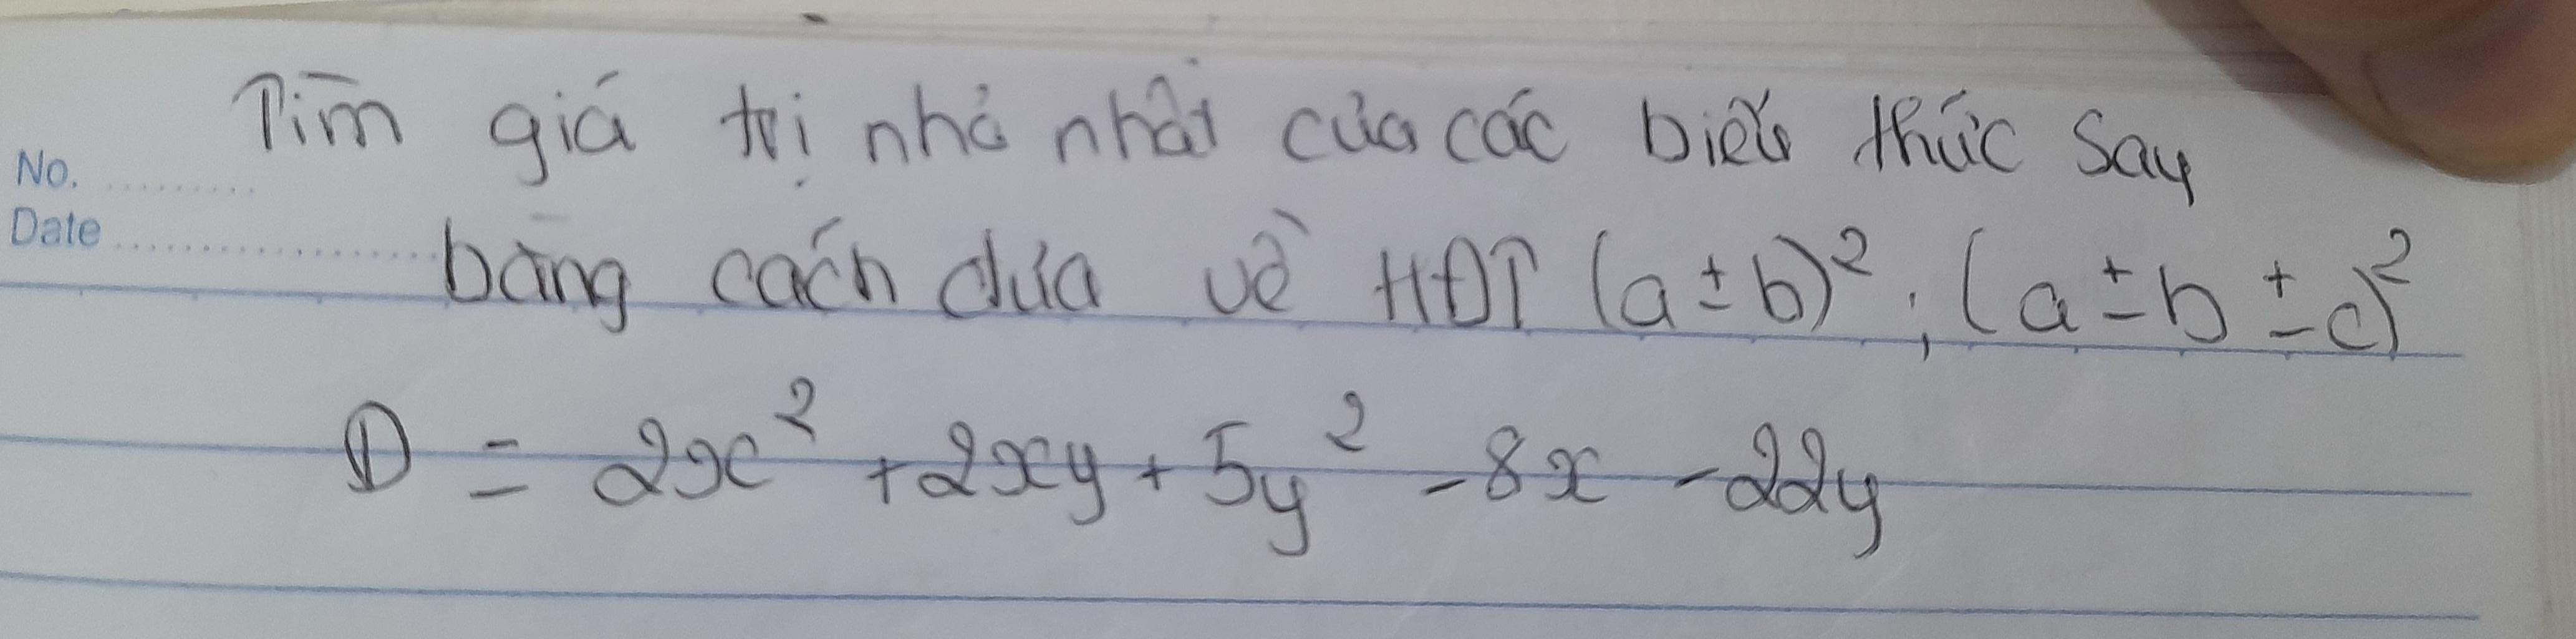 Tìm giá trị nhỏ nhất của các biểu thức say
No. ............
Date ........................
bằng cách đưa về HĐT (a ± b)² ; (a ± b ± c)²
D = 2x² + 2xy + 5y² - 8x - 22y